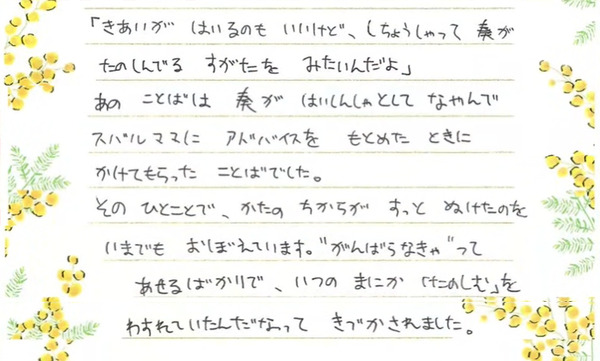 「きあいが はいるのも いいけど、しちょうしゃって 奏が
たのしんでる すがたを みたいんだよ」
あの ことばは 奏が はいしんしゃとして なやんで
スバルママに アドバイスを もとめた ときに
かけてもらった ことばでした。
その ひとことで、かたの ちからが すっと ぬけたのを
いまでも おぼえています。"がんばらなきゃ"って
あせるばかりで、いつの まにか 「たのしむ」を
わすれていたんだなって きづかされました。